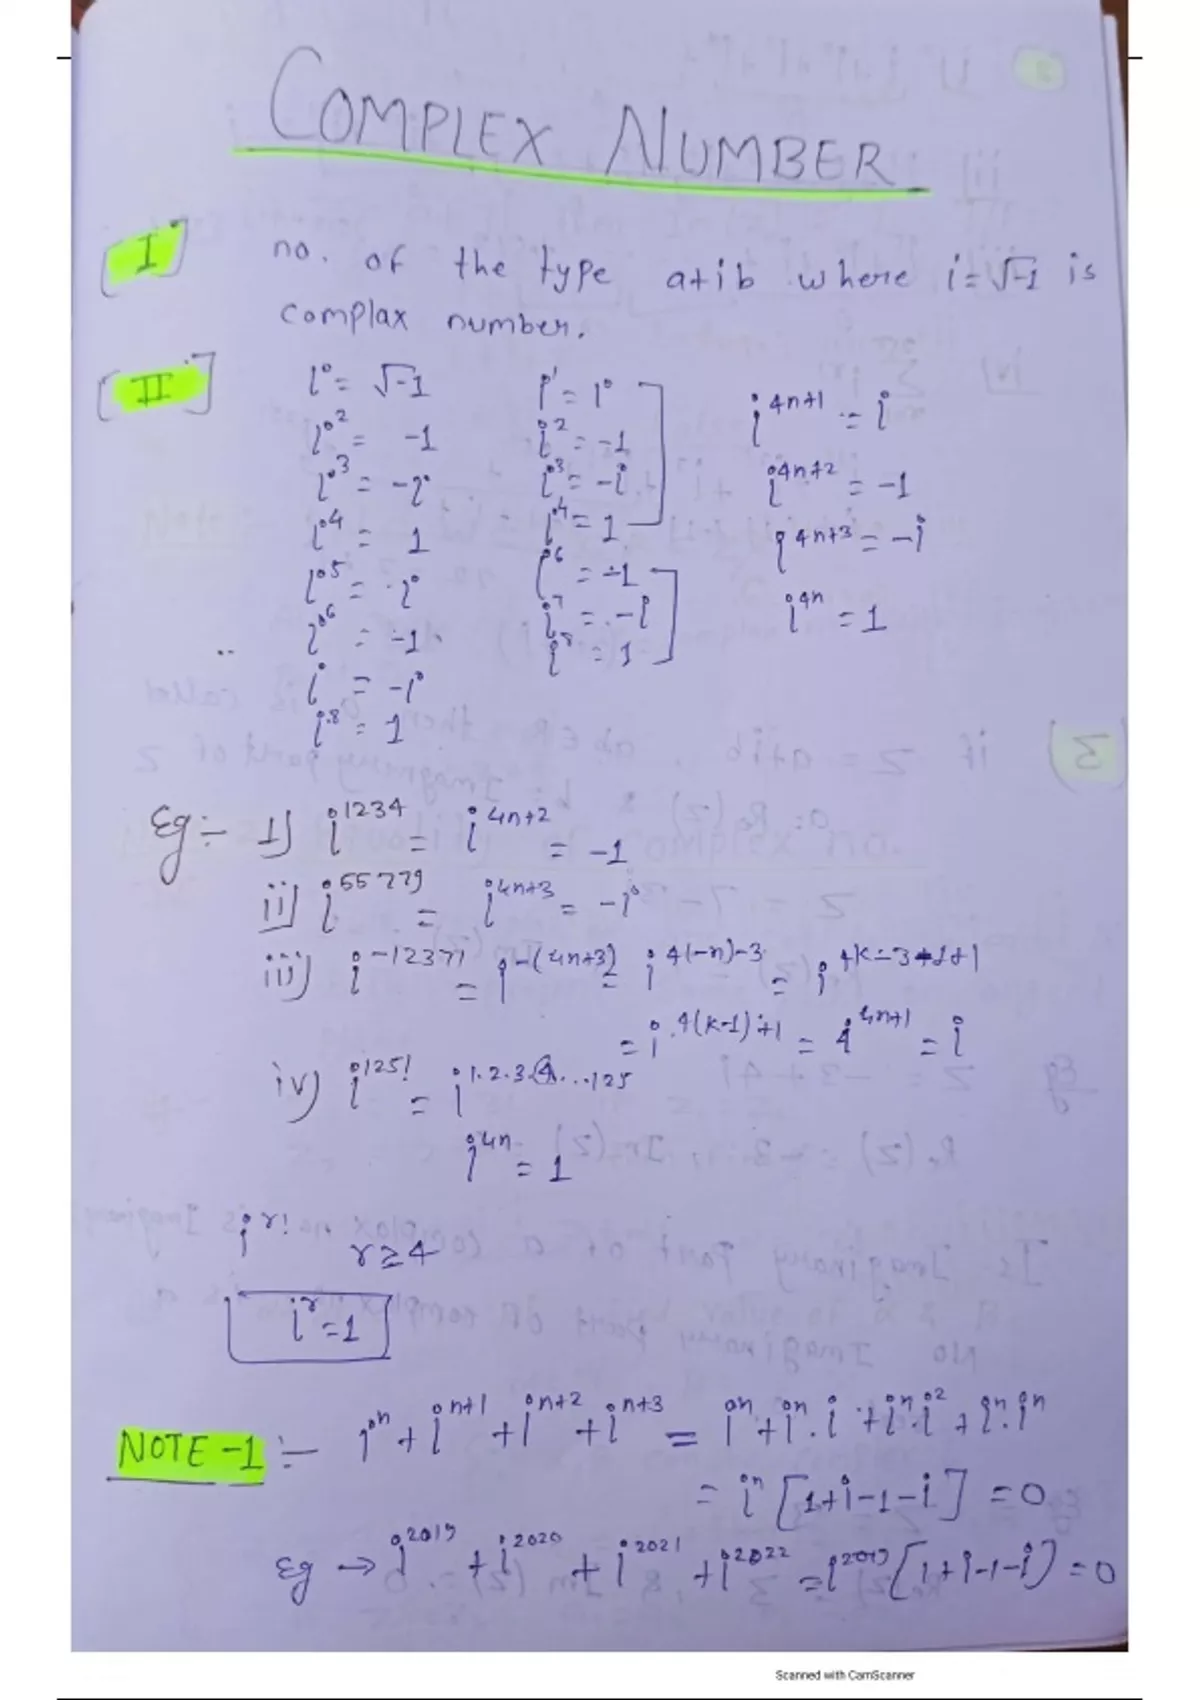 COMPLEX NUMBER
[I] no. of the type a+ib where i=√-1 is
complax number.
[II] i = √-1 i¹ = i i⁴ⁿ⁺¹ = i
i² = -1 i² = -1 i⁴ⁿ⁺² = -1
i³ = -i i³ = -i i⁴ⁿ⁺³ = -i
i⁴ = 1 i⁴ = 1 i⁴ⁿ = 1
i⁵ = i i⁶ = -1
i⁶ = -1 i⁷ = -i
i = -i i⁸ = 1
i⁸ = 1
Eg:- i) i¹²³⁴ = i⁴ⁿ⁺² = -1
ii) i⁵⁵⁷⁷⁹ = i⁴ⁿ⁺³ = -i
iii) i⁻¹²³⁷¹ = i^-(4n+3) = i^4(-n)-3 = i^4k-3+1+1
= i^4(k-1)+1 = i⁴ⁿ⁺¹ = i
iv) i^125! = i^1.2.3.4...125
i⁴ⁿ = 1
i^r! r≥4
i^r = 1
NOTE-1 :- iⁿ + iⁿ⁺¹ + iⁿ⁺² + iⁿ⁺³ = iⁿ + iⁿ.i + iⁿ.i² + iⁿ.iⁿ
= iⁿ [1+i-1-i] = 0
Eg → i²⁰¹⁹ + i²⁰²⁰ + i²⁰²¹ + i²⁰²² = i²⁰¹⁹ [1+i-1-i] = 0
Scanned with CamScanner